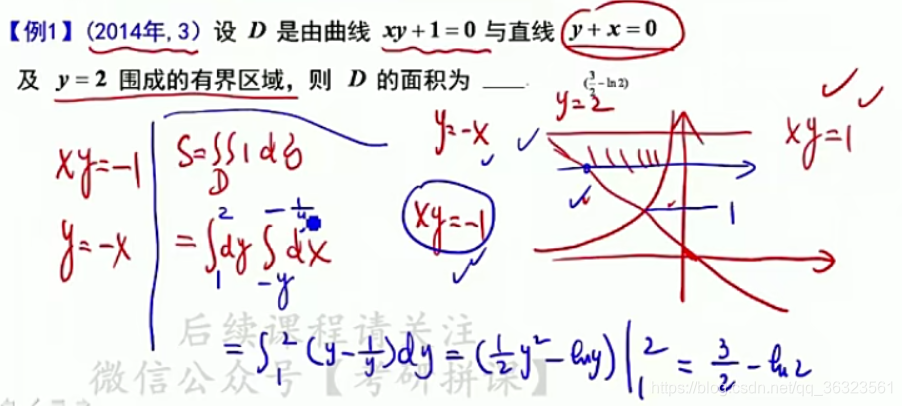 【例1】(2014年,3) 设 D 是由曲线 xy+1=0 与直线 y+x=0
及 y=2 围成的有界区域，则 D 的面积为 ____. (3/2-ln2)
y=2
xy=-1
S=∬1dσ
D
y=-x
xy=1
y=-x
=∫₁²dy∫_{-y}^{-1/y}dx
xy=-1
1
=∫₁²(y-1/y)dy=(1/2y²-lny)|₁²=3/2-ln2
后续课程请关注
微信公众号【考研拼课】
https://blog.csdn.net/qq_36323561